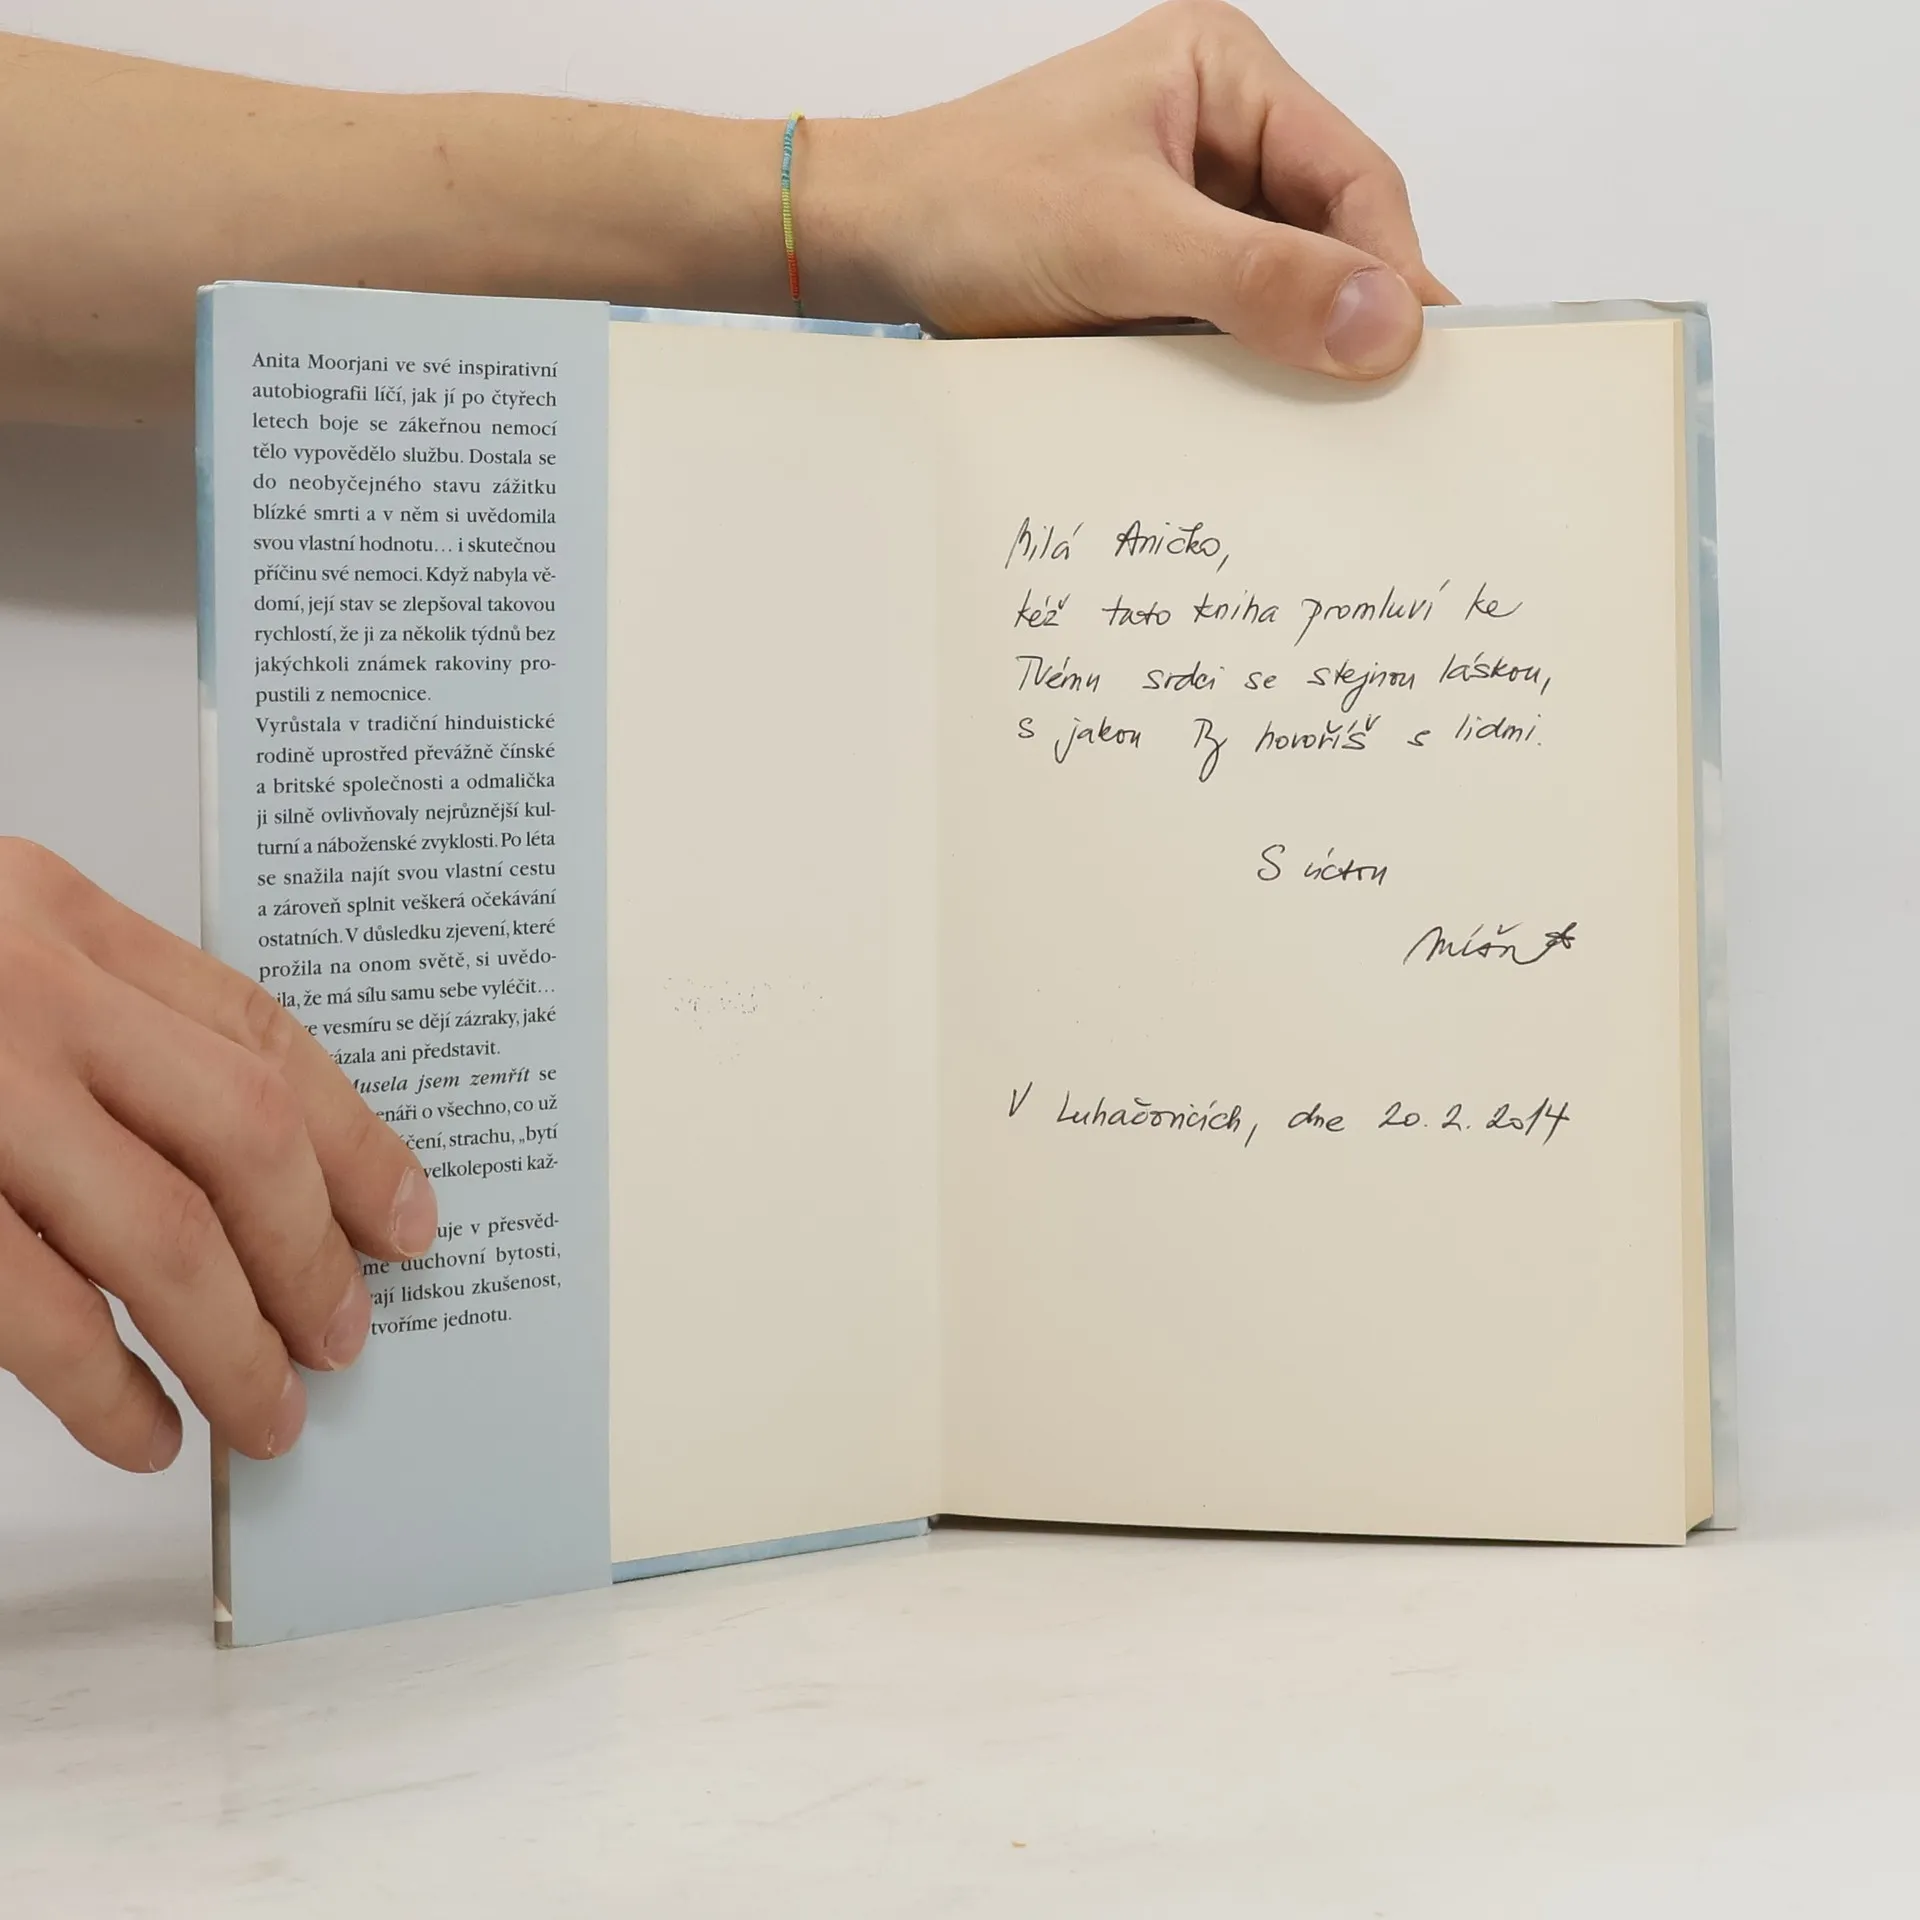 Anita Moorjani ve své inspirativní
autobiografii líčí, jak jí po čtyřech
letech boje se zákeřnou nemocí
tělo vypovědělo službu. Dostala se
do neobyčejného stavu zážitku
blízké smrti a v něm si uvědomila
svou vlastní hodnotu... i skutečnou
příčinu své nemoci. Když nabyla vě-
domí, její stav se zlepšoval takovou
rychlostí, že ji za několik týdnů bez
jakýchkoli známek rakoviny pro-
pustili z nemocnice.
Vyrůstala v tradiční hinduistické
rodině uprostřed převážně čínské
a britské společnosti a odmalička
ji silně ovlivňovaly nejrůznější kul-
turní a náboženské zvyklosti. Po léta
se snažila najít svou vlastní cestu
a zároveň splnit veškerá očekávání
ostatních. V důsledku zjevení, které
prožila na onom světě, si uvědo-
ila, že má sílu samu sebe vyléčit...
vesmíru se dějí zázraky, jaké
ázala ani představit.
Musela jsem zemřít se
enáři o všechno, co už
čení, strachu, „bytí
velkoleposti kaž-
uje v přesvěd-
me duchovní bytosti,
ají lidskou zkušenost,
tvoříme jednotu.
Milá Aničko,
kéž tato kniha promluví ke
Tvému srdci se stejnou láskou,
s jakou Ty hovoříš s lidmi.
S úctou
V Luhačovicích, dne 20. 2. 2014